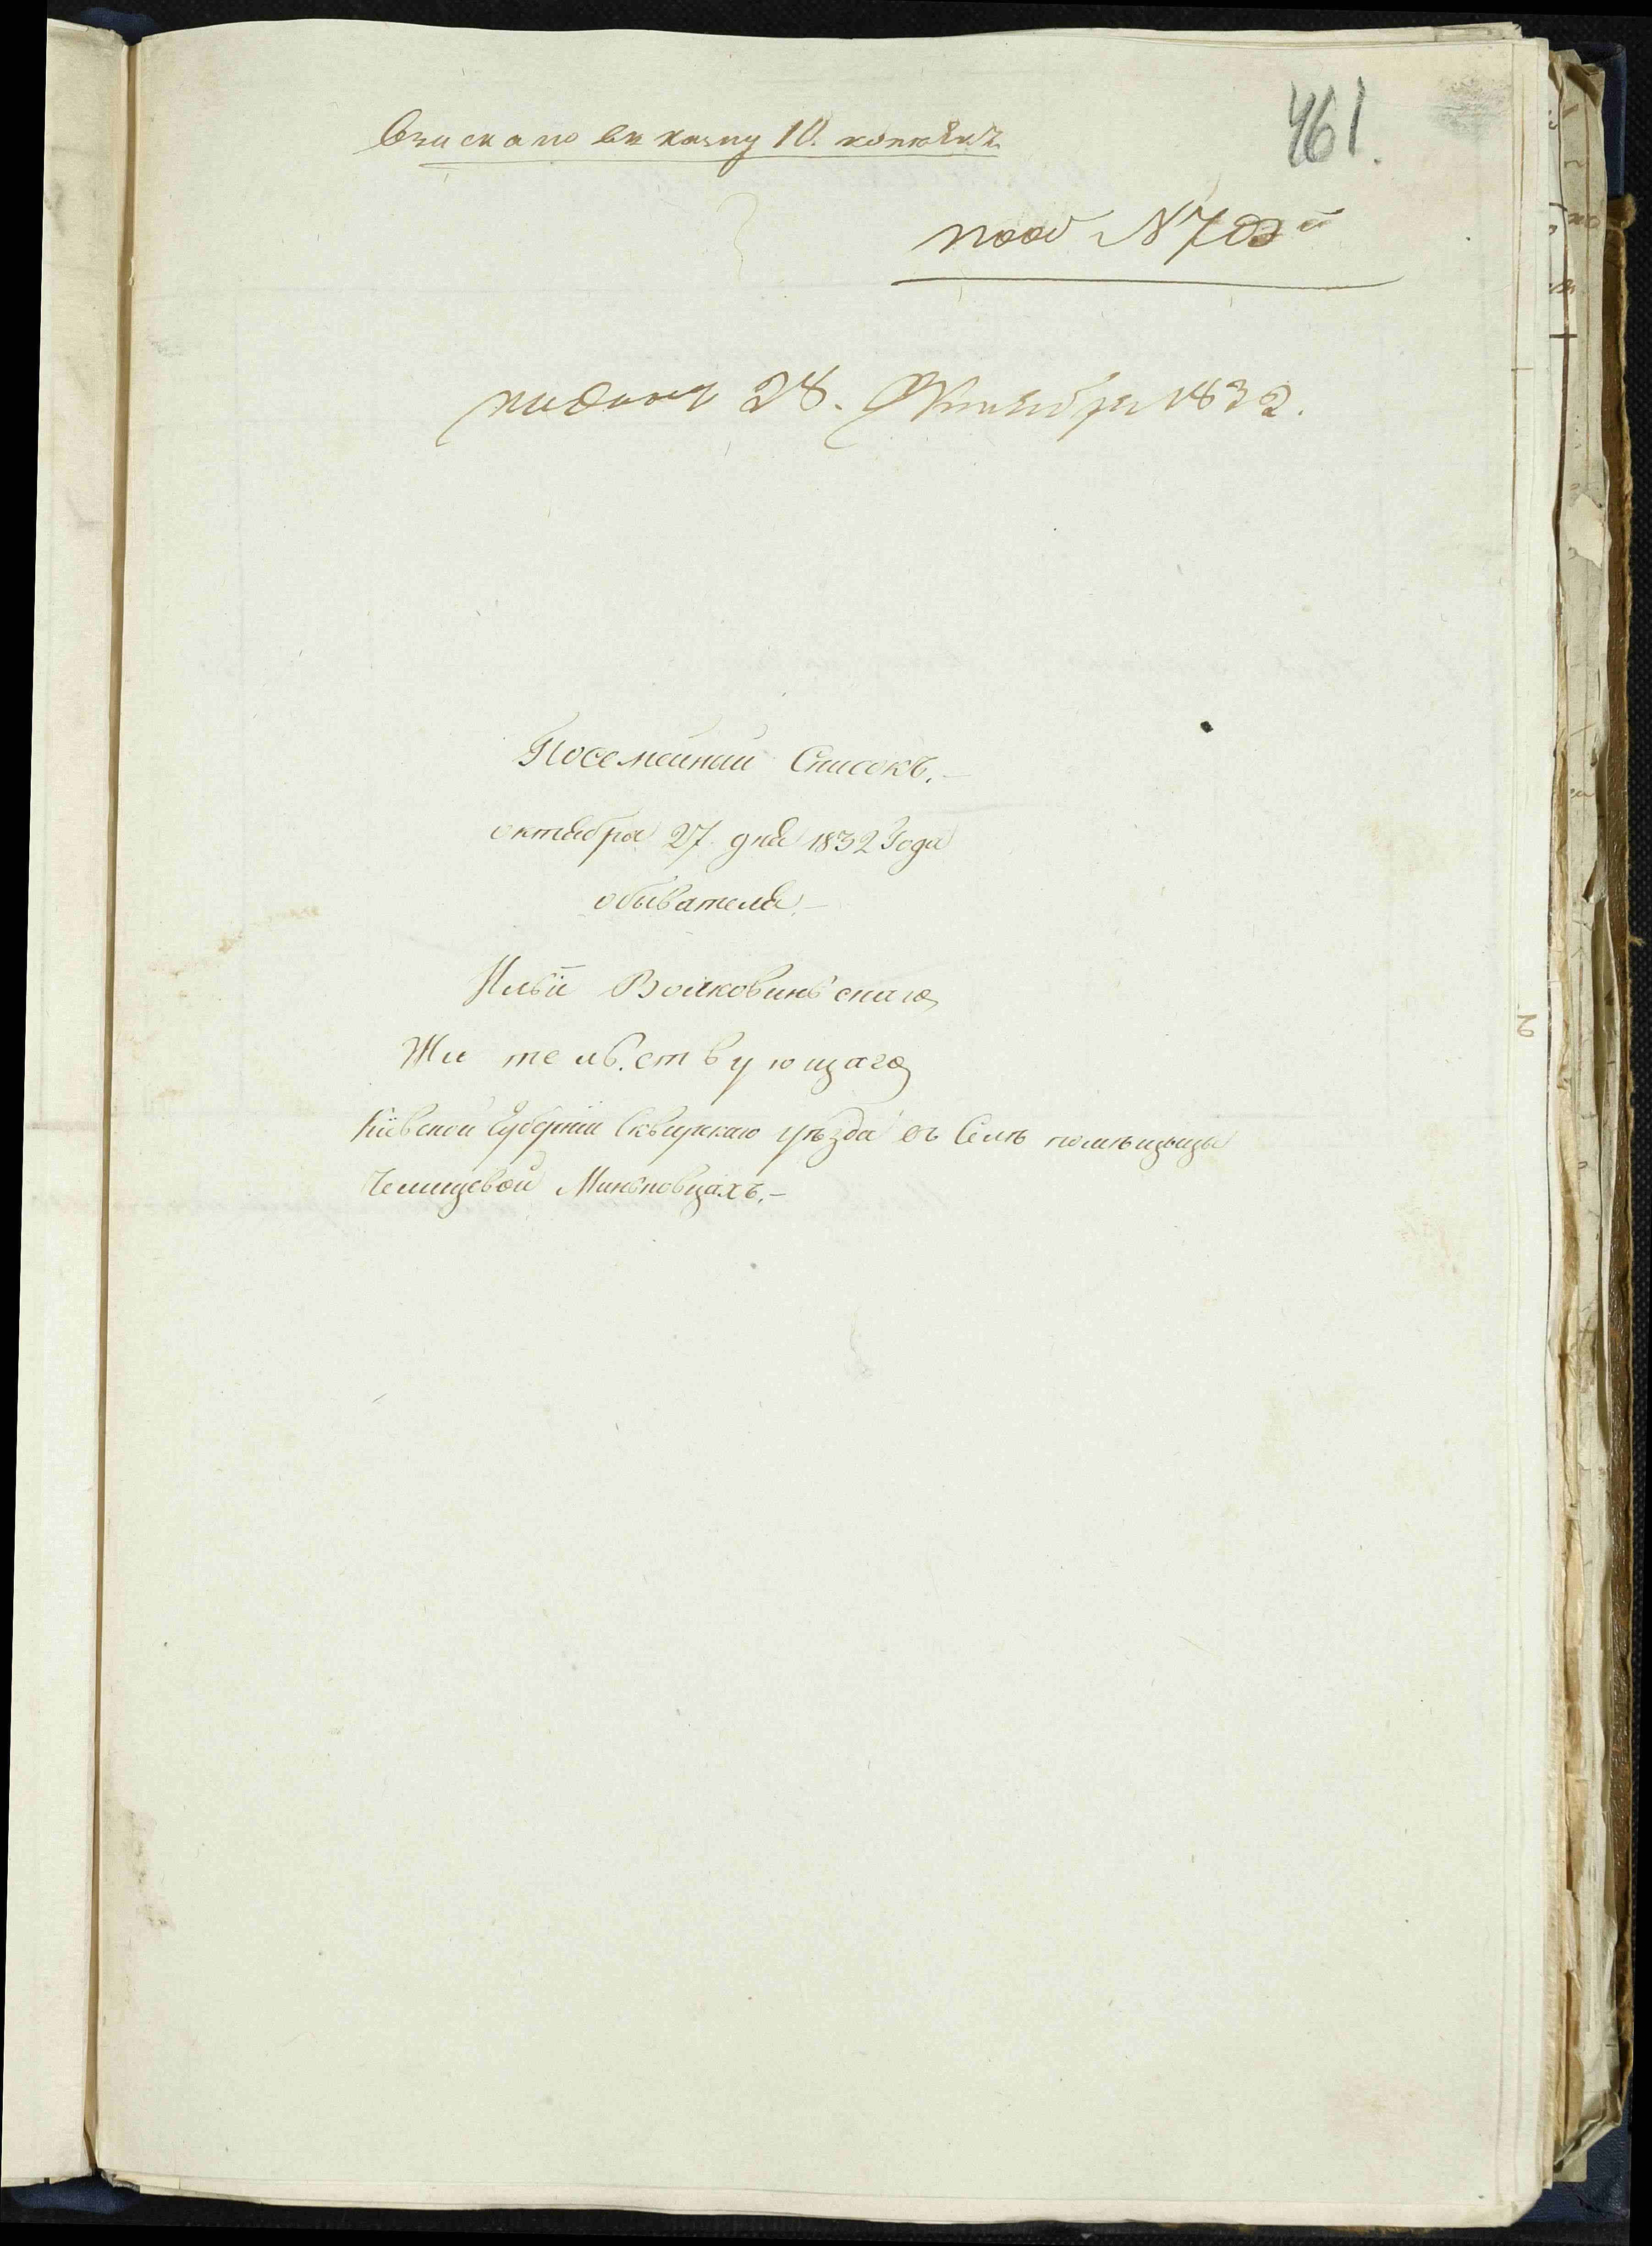 Взискано въ казну 10. копѣекъ.
461.
под №
поданъ 28. Октября 1832.
Посемейный Списокъ.-
октября 27 дня 1832 Года
обывателя.-
Ильи Волковинскаго
Жительствующаго
Кіевской Губерніи Сквирскаго уѣзда въ Селѣ помѣщицы
Челищевой Миньковцахъ.-